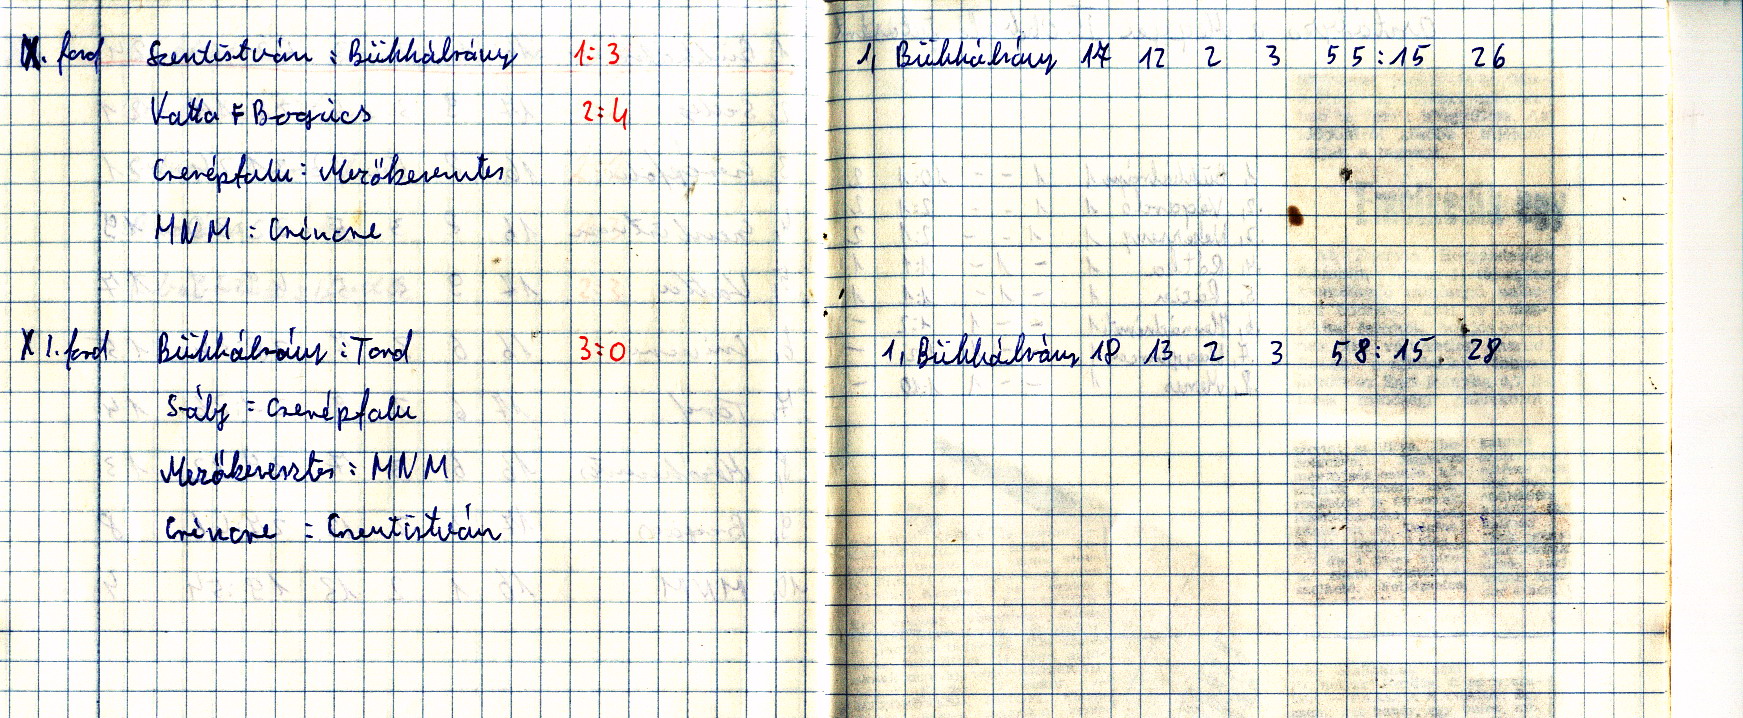 X. ford Szentistván : Bükkábrány 1:3
Vatta : Bogács 2:4
Cserépfalu : Mezőkeresztes
MNM : Csincse
XI. ford Bükkábrány : Tard 3:0
Sály = Cserépfalu
Mezőkeresztes : MNM
Csincse = Szentistván
1, Bükkábrány 17 12 2 3 55:15 26
1, Bükkábrány 18 13 2 3 58:15. 28